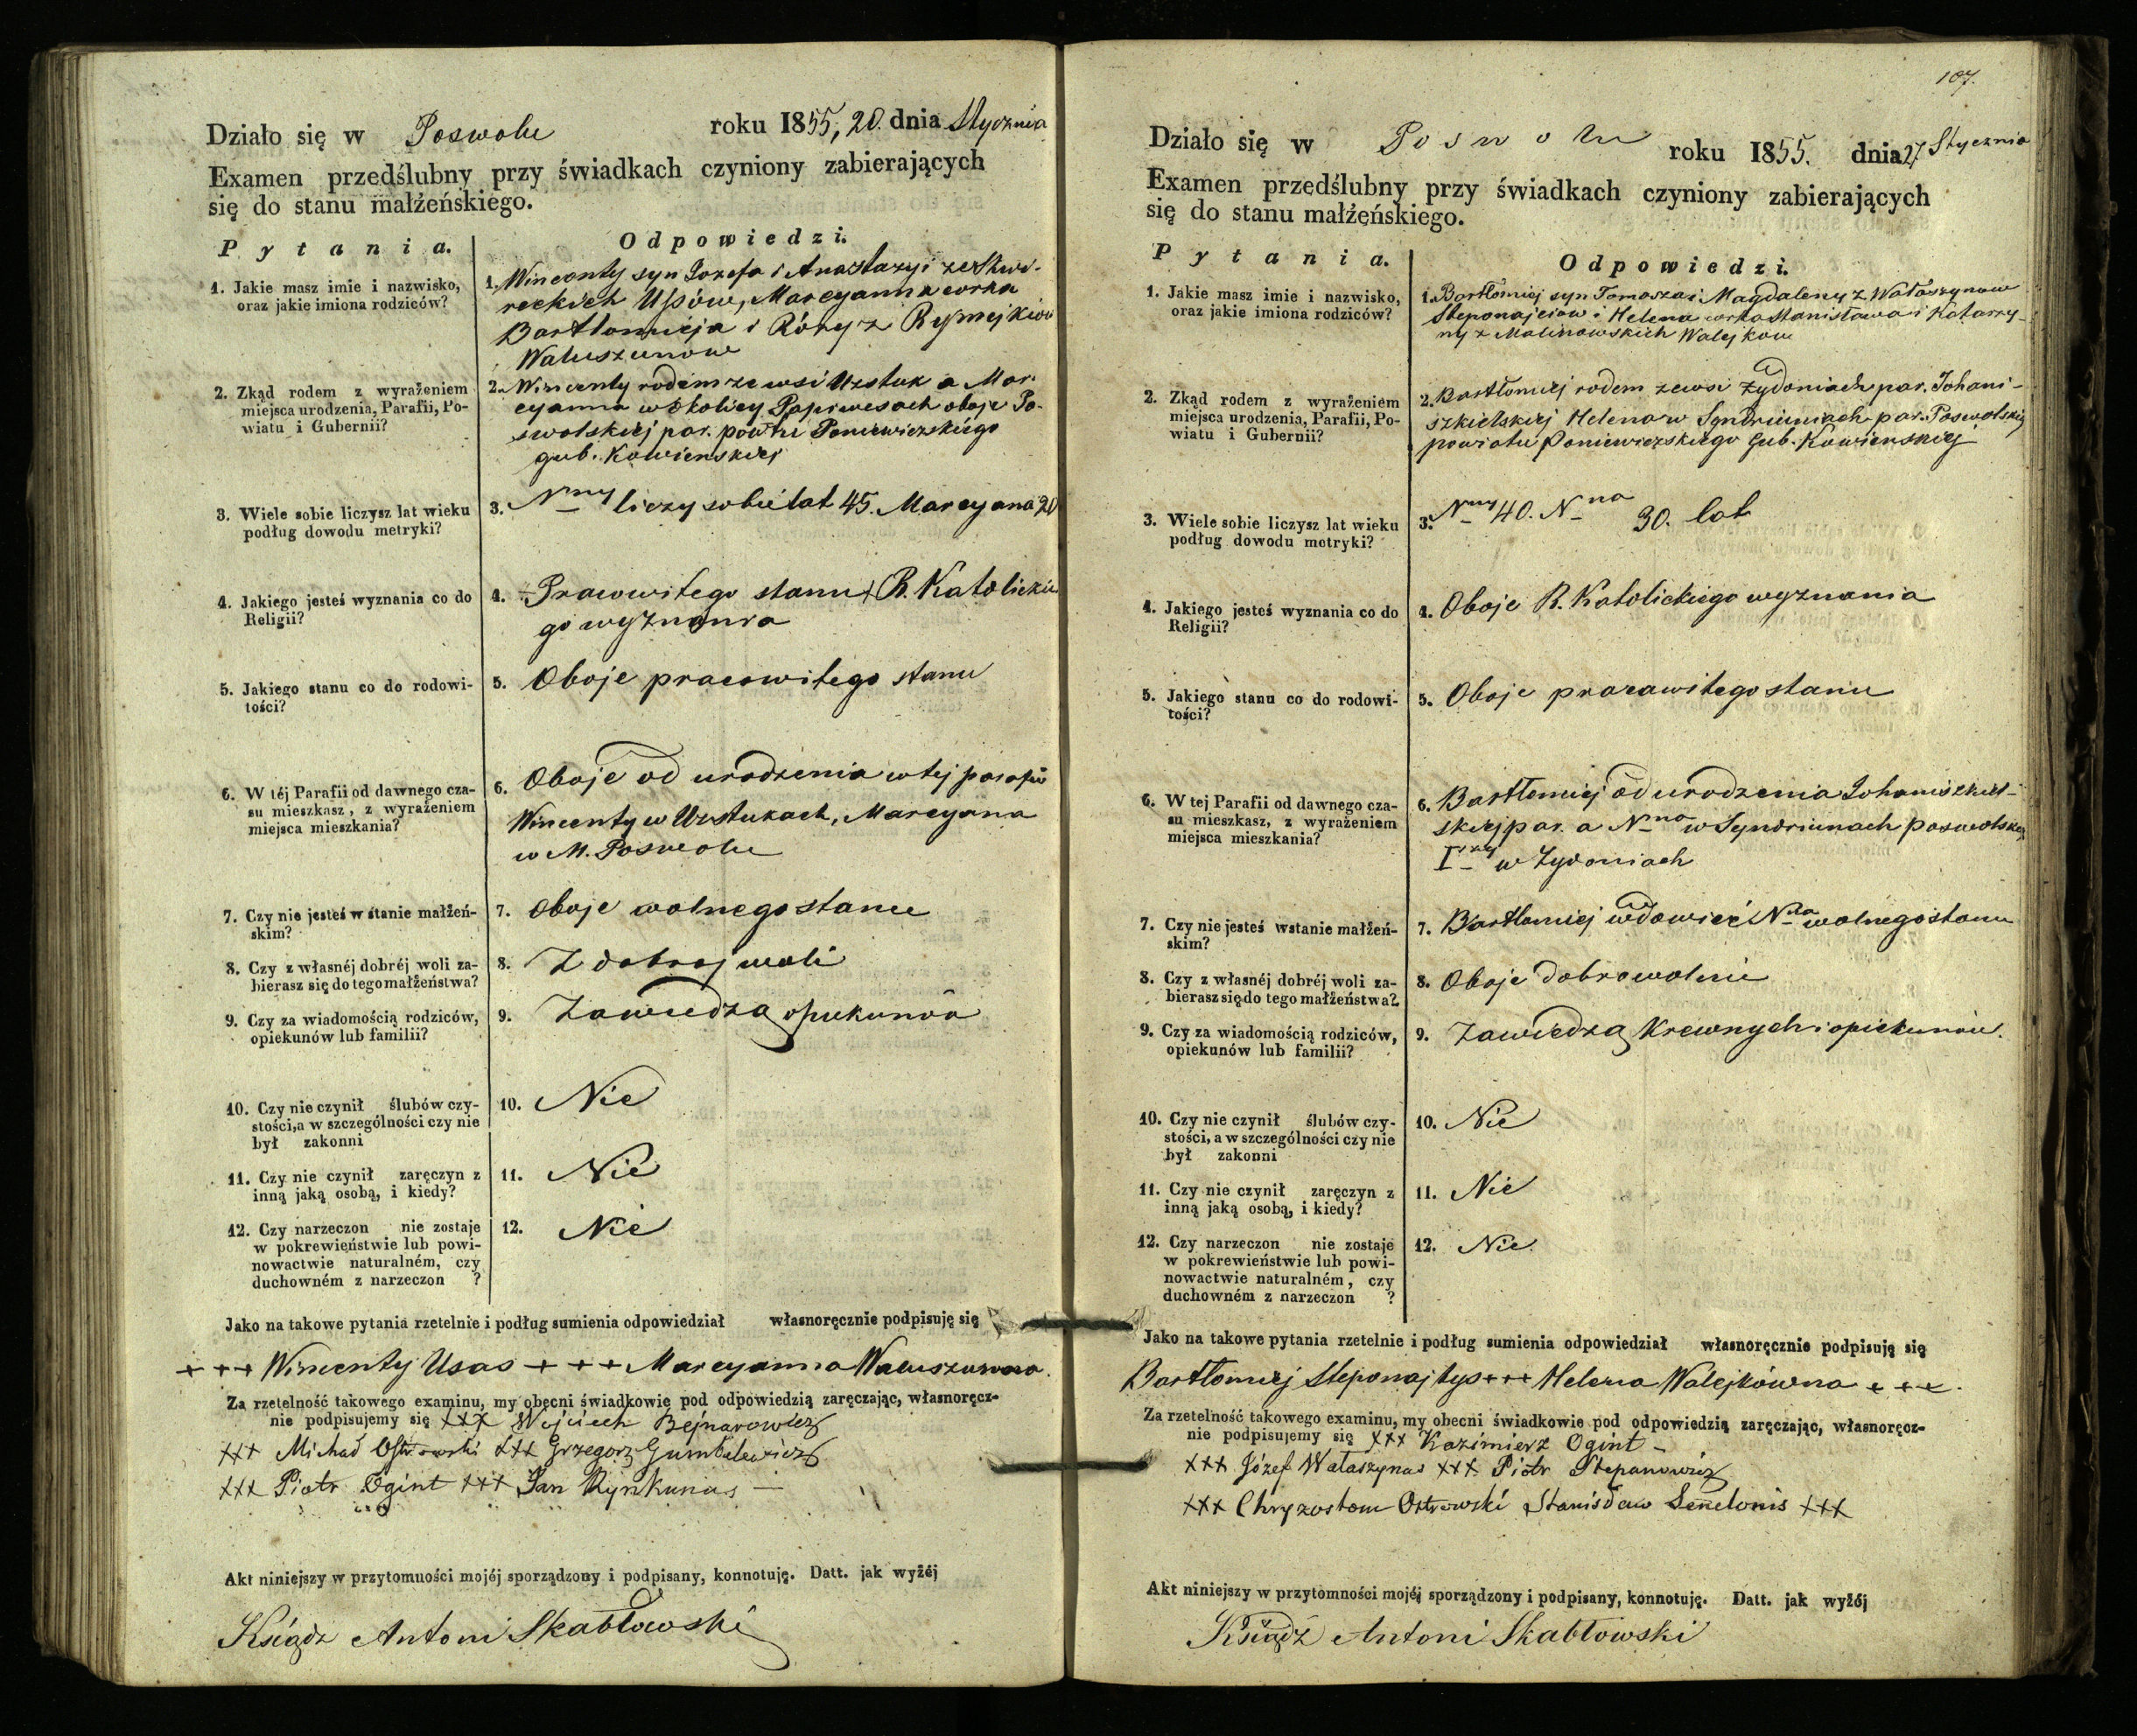 Działo się w Poswolu roku 1855, 20. dnia Stycznia
Examen przedślubny przy świadkach czyniony zabierających
się do stanu małżeńskiego.
Pytania. Odpowiedzi.
1. Jakie masz imie i nazwisko,
oraz jakie imiona rodziców?
1. Wincenty syn Jozefa i Anastazyi ze Skwi-
reckich Usów, Marcyanna corka
Bartłomieja i Róży z Rymejkiw
Waluszunow
2. Zkąd rodem z wyrażeniem
miejsca urodzenia, Parafii, Po-
wiatu i Gubernii?
2. Wincenty rodem ze wsi Uzstuk a Mar-
cyanna w Okolicy Papiwesach oboje Po-
swolskiej par. powtu Poniewiezskiego
gub. Kowienskiej
3. Wiele sobie liczysz lat wieku
podług dowodu metryki?
3. Nny liczy sobie lat 45. Marcyana 20
4. Jakiego jesteś wyznania co do
Religii?
4. Pracowitego stanu R. Katolickie
go wyznania
5. Jakiego stanu co do rodowi-
tości?
5. Oboje pracowitego stanu
6. W téj Parafii od dawnego cza-
su mieszkasz, z wyrażeniem
miejsca mieszkania?
6. Oboje od urodzenia w tej parafii
Wincenty w Uzstukach, Marcyana
w M. Poswolu
7. Czy nie jesteś w stanie małżeń-
skim?
7. Oboje wolnego stanu
8. Czy z własnéj dobréj woli za-
bierasz się do tego małżeństwa?
8. Z dobrej woli
9. Czy za wiadomością rodziców,
opiekunów lub familii?
9. Zawiedzą opiekunów
10. Czy nie czynił ślubów czy-
stości, a w szczególności czy nie
był zakonni
10. Nie
11. Czy nie czynił zaręczyn z
inną jaką osobą, i kiedy?
11. Nie
12. Czy narzeczon nie zostaje
w pokrewieństwie lub powi-
nowactwie naturalném, czy
duchowném z narzeczon ?
12. Nie
Jako na takowe pytania rzetelnie i podług sumienia odpowiedział własnoręcznie podpisuję się
+++ Wincenty Usas +++ Marcyanna Waluszunowa.
Za rzetelność takowego examinu, my obecni świadkowie pod odpowiedzią zaręczając, własnoręcz-
nie podpisujemy się xxx Wojciech Bejnarowicz
xxx Michał Ostrowski xxx Grzegorz Gumbalewicz
xxx Piotr Ogint xxx Jan Rynkunas —
Akt niniejszy w przytomności mojéj sporządzony i podpisany, konnotuję. Datt. jak wyżéj
Ksiądz Antoni Skabłowski
107.
Działo się w Poswolu roku 1855. dnia 27 Stycznia
Examen przedślubny przy świadkach czyniony zabierających
się do stanu małżeńskiego.
Pytania. Odpowiedzi.
1. Jakie masz imie i nazwisko,
oraz jakie imiona rodziców?
1. Bartłomiej syn Tomasza i Magdaleny z Wałaszynow
Steponajciow i Helena corka Stanisława i Katarzy-
ny z Malinowskich Walejkow
2. Zkąd rodem z wyrażeniem
miejsca urodzenia, Parafii, Po-
wiatu i Gubernii?
2. Bartłomiej rodem ze wsi Zydoniach par. Johani-
szkielskiej Helena w Syndriuniach par. Poswolskiej
powiatu Poniewiezskiego Gub. Kowienskiej
3. Wiele sobie liczysz lat wieku
podług dowodu metryki?
3. Nny 40. Nna 30. lat
4. Jakiego jesteś wyznania co do
Religii?
4. Oboje R. Katolickiego wyznania
5. Jakiego stanu co do rodowi-
tości?
5. Oboje pracawitego stanu
6. W tej Parafii od dawnego cza-
su mieszkasz, z wyrażeniem
miejsca mieszkania?
6. Bartłomiej od urodzenia Johaniszkiel-
skiej par. a Nna w Syndriunach poswolskiej
Iszy w Zydoniach
7. Czy nie jesteś wstanie małżeń-
skim?
7. Bartłomiej wdowiec Nna wolnego stanu
8. Czy z własnéj dobréj woli za-
bierasz się do tego małżeństwa?
8. Oboje dobrowolnie
9. Czy za wiadomością rodziców,
opiekunów lub familii?
9. Zawiedzą Krewnych i opiekunów.
10. Czy nie czynił ślubów czy-
stości, a w szczególności czy nie
był zakonni
10. Nie
11. Czy nie czynił zaręczyn z
inną jaką osobą, i kiedy?
11. Nie
12. Czy narzeczon nie zostaje
w pokrewieństwie lub powi-
nowactwie naturalném, czy
duchowném z narzeczon ?
12. Nie.
Jako na takowe pytania rzetelnie i podług sumienia odpowiedział własnoręcznie podpisuję się
Bartłomiej Steponajtys +++ Helena Walejkówna +++.
Za rzetelność takowego examinu, my obecni świadkowie pod odpowiedzią zaręczając, własnoręcz-
nie podpisujemy się xxx Kazimierz Ogint —
xxx Józef Wałaszynas xxx Piotr Stepanowicz
xxx Chryzostom Ostrowski Stanisław Senelonis xxx
Akt niniejszy w przytomności mojéj sporządzony i podpisany, konnotuję. Datt. jak wyżéj
Ksiądz Antoni Skabłowski